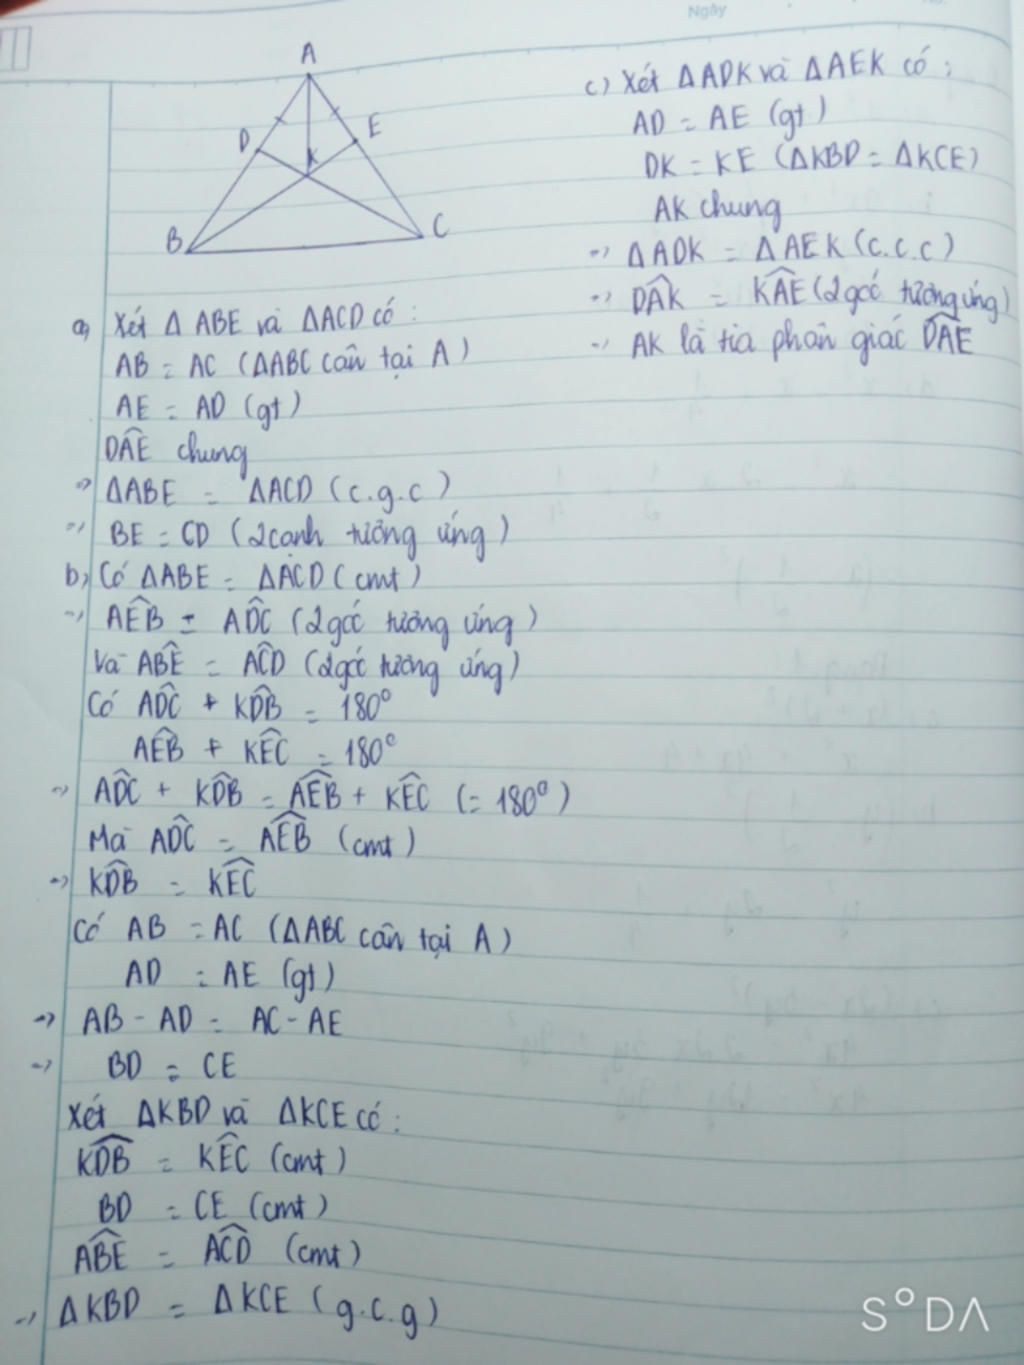 Ngày
A
D
E
K
B
C
a, Xét Δ ABE và ΔACD có:
AB = AC (ΔABC cân tại A)
AE = AD (gt)
DÂE chung
=> ΔABE = ΔACD (c.g.c)
=> BE = CD (2 cạnh tương ứng)
b, Có ΔABE = ΔACD (cmt)
=> AÊB = AD̂C (2 góc tương ứng)
Và AB̂E = AĈD (2 góc tương ứng)
Có AD̂C + KD̂B = 180°
AÊB + KÊC = 180°
=> AD̂C + KD̂B = AÊB + KÊC (= 180°)
Mà AD̂C = AÊB (cmt)
=> KD̂B = KÊC
Có AB = AC (ΔABC cân tại A)
AD = AE (gt)
=> AB - AD = AC - AE
=> BD = CE
Xét ΔKBD và ΔKCE có:
KD̂B = KÊC (cmt)
BD = CE (cmt)
AB̂E = AĈD (cmt)
=> ΔKBD = ΔKCE (g.c.g)
c) Xét ΔADK và ΔAEK có:
AD = AE (gt)
DK = KE (ΔKBD = ΔKCE)
AK chung
=> ΔADK = ΔAEK (c.c.c)
=> DÂK = KÂE (2 góc tương ứng)
=> AK là tia phân giác DÂE
SODA